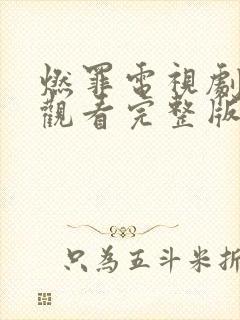 燃罪電視劇
觀看完整版
只為五斗米折